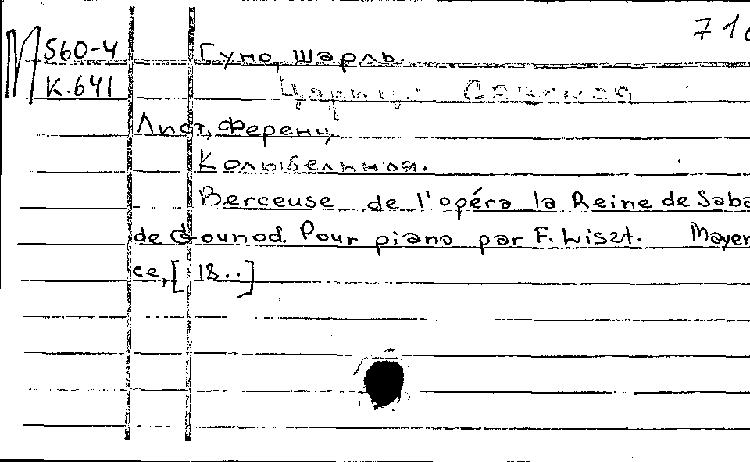 М 560-4 Гуно, Шарль.
К.641 Царица Савская
Лист, Ференц
Колыбельная.
Berceuse de l'opéra la Reine de Saba
de Gounod. Pour piano par F. Liszt. Mayen
ce, [18..]